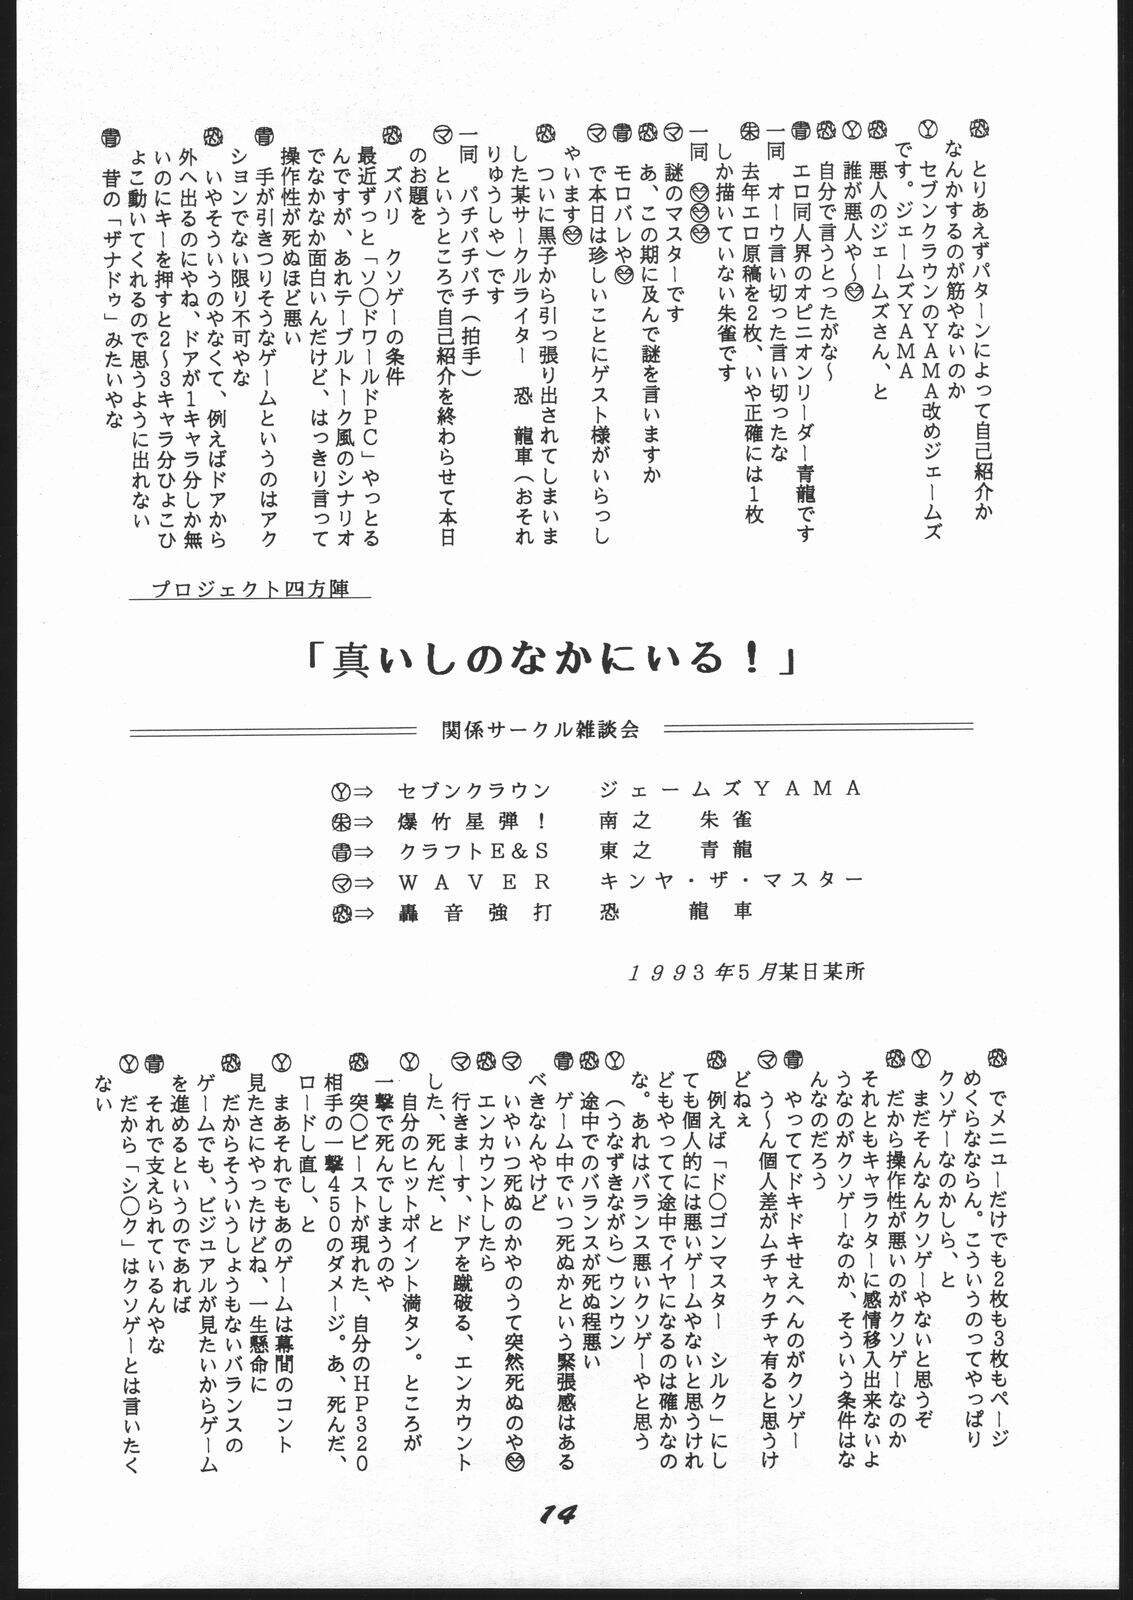 恐　とりあえずパターンによって自己紹介か
なんかするのが筋やないのか
Ｙ　セブンクラウンのＹＡＭＡ改めジェームズ
です。ジェームズＹＡＭＡ
恐　悪人のジェームズさん、と
Ｙ　誰が悪人や～
恐　自分で言うとったがな～
青　エロ同人界のオピニオンリーダー青龍です
一同　オーウ言い切った言い切ったな
朱　去年エロ原稿を２枚、いや正確には１枚
しか描いていない朱雀です
一同
マ　謎のマスターです
恐　あ、この期に及んで謎を言いますか
青　モロバレや
マ　で本日は珍しいことにゲスト様がいらっし
ゃいます
恐　ついに黒子から引っ張り出されてしまいま
した某サークルライター　恐　龍車（おそれ
りゅうしゃ）です
一同　パチパチパチ（拍手）
マ　というところで自己紹介を終わらせて本日
のお題を
恐　ズバリ　クソゲーの条件
最近ずっと「ソ〇ドワールドＰＣ」やっとる
んですが、あれテーブルトーク風のシナリオ
でなかなか面白いんだけど、はっきり言って
操作性が死ぬほど悪い
青　手が引きつりそうなゲームというのはアク
ションでない限り不可やな
恐　いやそういうのやなくて、例えばドアから
外へ出るのにやね、ドアが１キャラ分しか無
いのにキーを押すと２～３キャラ分ひょこひ
ょこ動いてくれるので思うように出れない
青　昔の「ザナドゥ」みたいやな
プロジェクト四方陣
「真いしのなかにいる！」
関係サークル雑談会
Ｙ⇒　セブンクラウン　ジェームズＹＡＭＡ
朱⇒　爆竹星弾！　南之　朱雀
青⇒　クラフトＥ＆Ｓ　東之　青龍
マ⇒　ＷＡＶＥＲ　キンヤ・ザ・マスター
恐⇒　轟音強打　恐　龍車
１９９３年５月某日某所
恐　でメニューだけでも２枚も３枚もページ
めくらなならん。こういうのってやっぱり
クソゲーなのかしら、と
Ｙ　まだそんなんクソゲーやないと思うぞ
恐　だから操作性が悪いのがクソゲーなのか
それともキャラクターに感情移入出来ないよ
うなのがクソゲーなのか、そういう条件はな
んなのだろう
青　やっててドキドキせえへんのがクソゲー
マ　う～ん個人差がムチャクチャ有ると思うけ
どねぇ
恐　例えば「ド〇ゴンマスター　シルク」にし
ても個人的には悪いゲームやないと思うけれ
どもやってて途中でイヤになるのは確かなの
な。あれはバランス悪いクソゲーやと思う
Ｙ　（うなずきながら）ウンウン
恐　途中でのバランスが死ぬ程悪い
青　ゲーム中でいつ死ぬかという緊張感はある
べきなんやけど
マ　いやいつ死ぬのかやのうて突然死ぬのや
恐　エンカウントしたら
マ　行きまーす、ドアを蹴破る、エンカウント
した、死んだ、と
Ｙ　自分のヒットポイント満タン。ところが
一撃で死んでしまうのや
恐　突〇ビーストが現れた、自分のＨＰ３２０
相手の一撃４５０のダメージ。あ、死んだ、
ロードし直し、と
Ｙ　まあそれでもあのゲームは幕間のコント
見たさにやったけどね、一生懸命に
恐　だからそういうしょうもないバランスの
ゲームでも、ビジュアルが見たいからゲーム
を進めるというのであれば
青　それで支えられているんやな
Ｙ　だから「シ〇ク」はクソゲーとは言いたく
ない
14